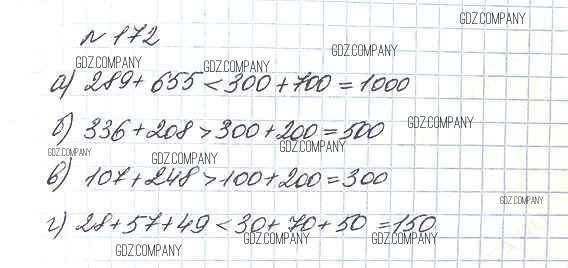 GDZ.COMPANY
№ 172
GDZ.COMPANY
GDZ.COMPANY GDZ.COMPANY
а) 289 + 655 < 300 + 700 = 1000
б) 336 + 208 > 300 + 200 = 500
GDZ.COMPANY
GDZ.COMPANY GDZ.COMPANY GDZ.COMPANY
в) 107 + 248 > 100 + 200 = 300
GDZ.COMPANY
г) 28 + 57 + 49 < 30 + 70 + 50 = 150
GDZ.COMPANY GDZ.COMPANY GDZ.COMPANY